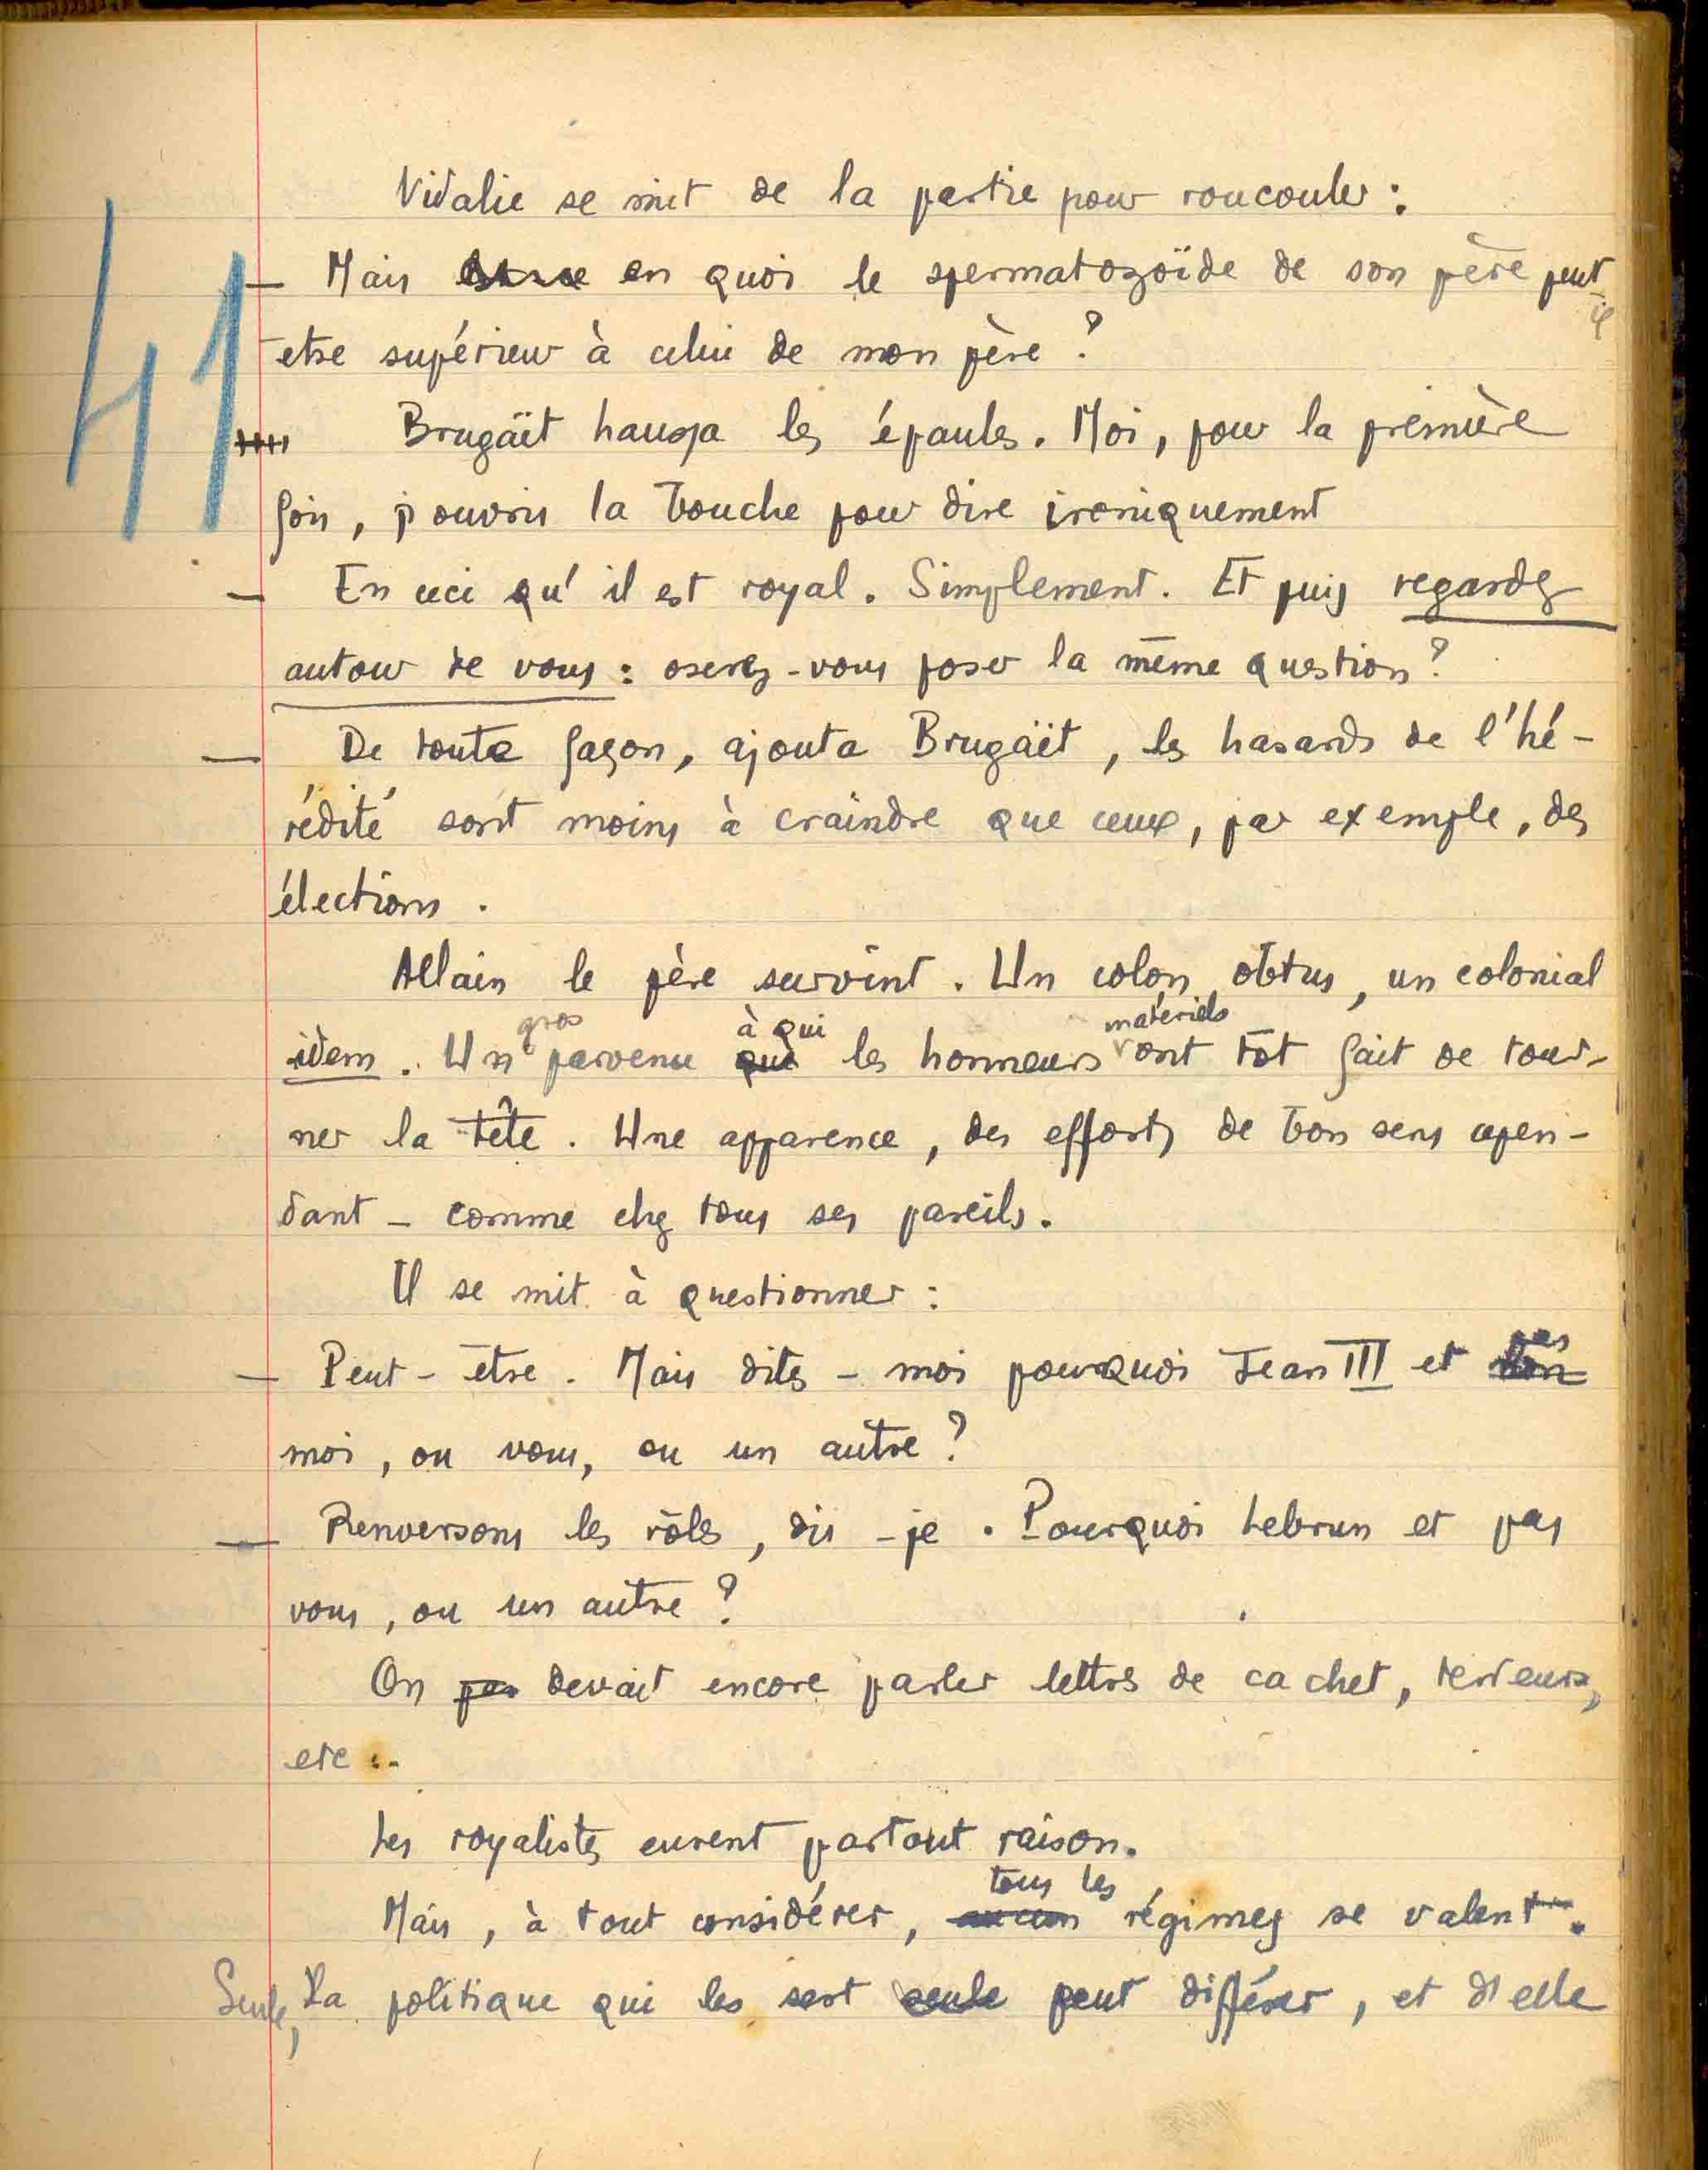 41
Vidalie se mit de la partie pour roucouler :
— Mais en quoi le spermatozoïde de son père peut-il
être supérieur à celui de mon père ?
Brugäit haussa les épaules. Moi, pour la première
fois, j'ouvris la bouche pour dire ironiquement
— En ceci qu'il est royal. Simplement. Et puis regardez
autour de vous : oserez-vous poser la même question ?
— De toute façon, ajouta Brugäit, les hasards de l'hé-
rédité sont moins à craindre que ceux, par exemple, des
élections.
Allain le père survint. Un colon obtus, un colonial
gros à qui matériels
idem. Un parvenu que les honneurs ont tôt fait de tour-
ner la tête. Une apparence, des efforts de bon sens cepen-
dant – comme chez tous ses pareils.
Il se mit à questionner :
pas
— Peut-être. Mais dites-moi pourquoi Jean III et non
moi, ou vous, ou un autre ?
— Renversons les rôles, dis-je. Pourquoi Lebrun et pas
vous, ou un autre ?
On pas devait encore parler lettres de cachet, terreurs,
etc...
Les royalistes eurent partout raison.
tous les
Mais, à tout considérer, aucun régimes se valent.
Seule, La politique qui les sert seule peut différer, et d'elle